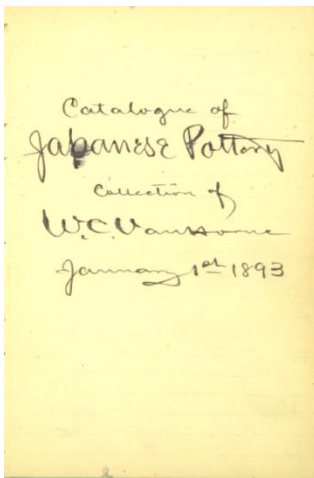 Catalogue of
Japanese Pottery
Collection of
W.C. Van Horne
January 1st 1893